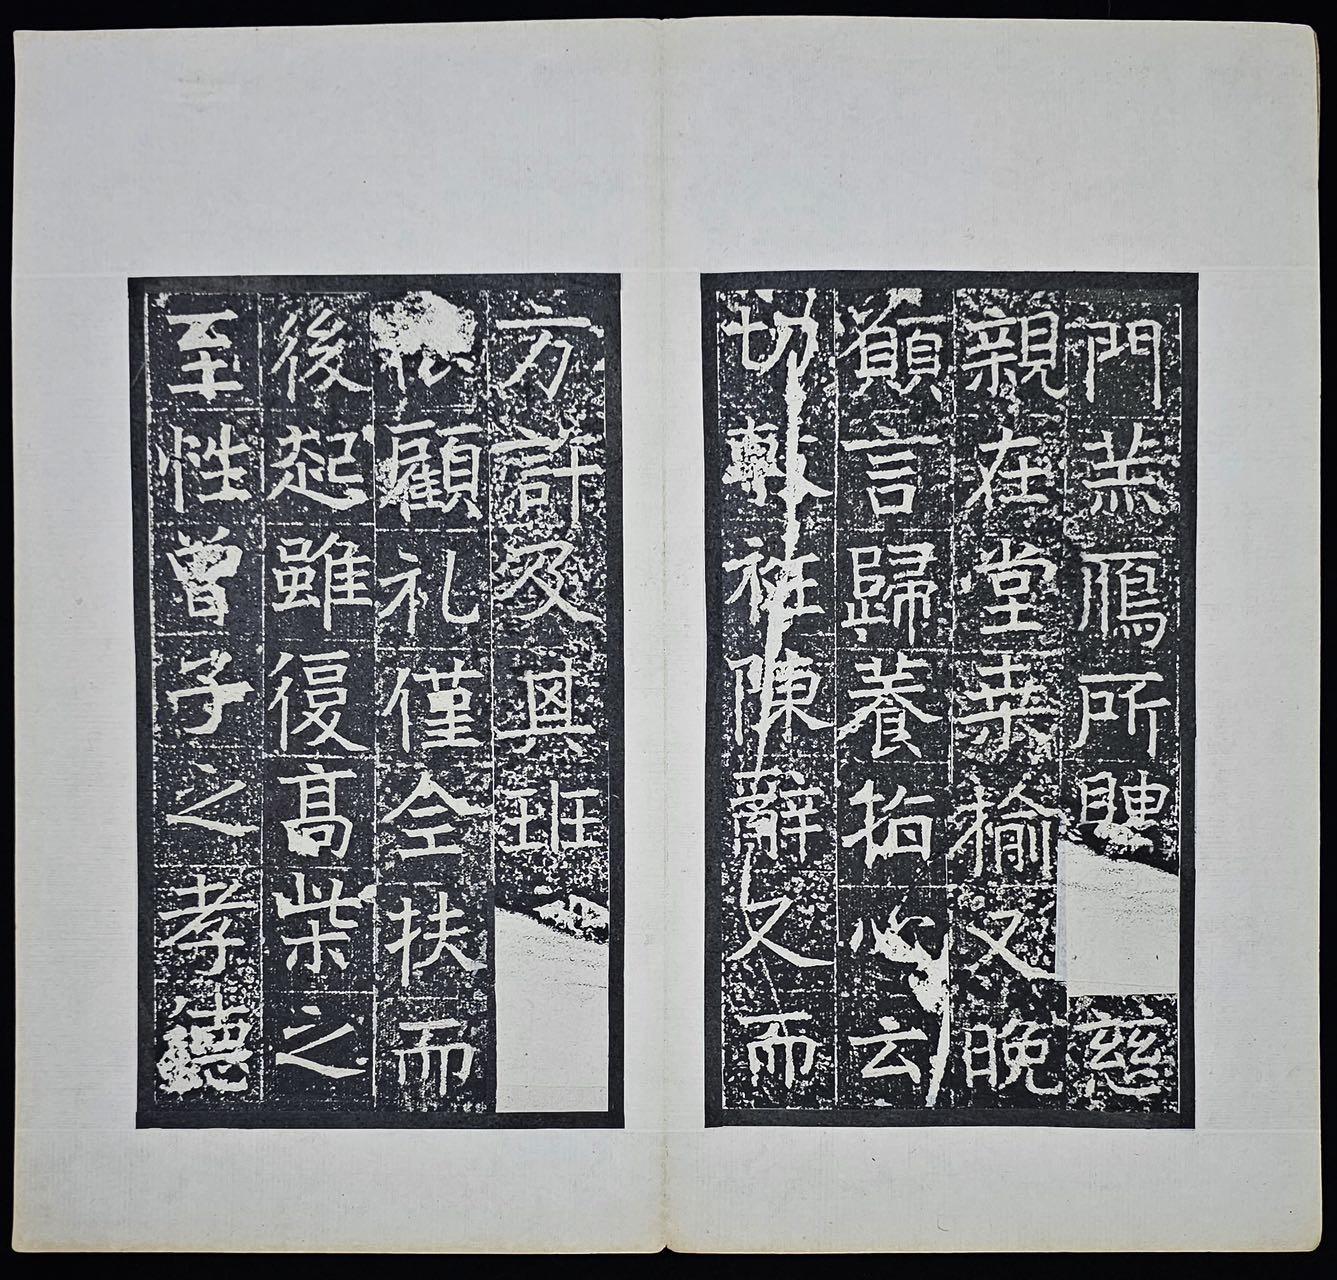 門羔鴈所聘慈
親在堂桒榆又晚
願言歸養指心云
切敷衽陳辭久而
方許及其班
顧礼僅全扶而
後起雖復髙柴之
至性曾子之孝德